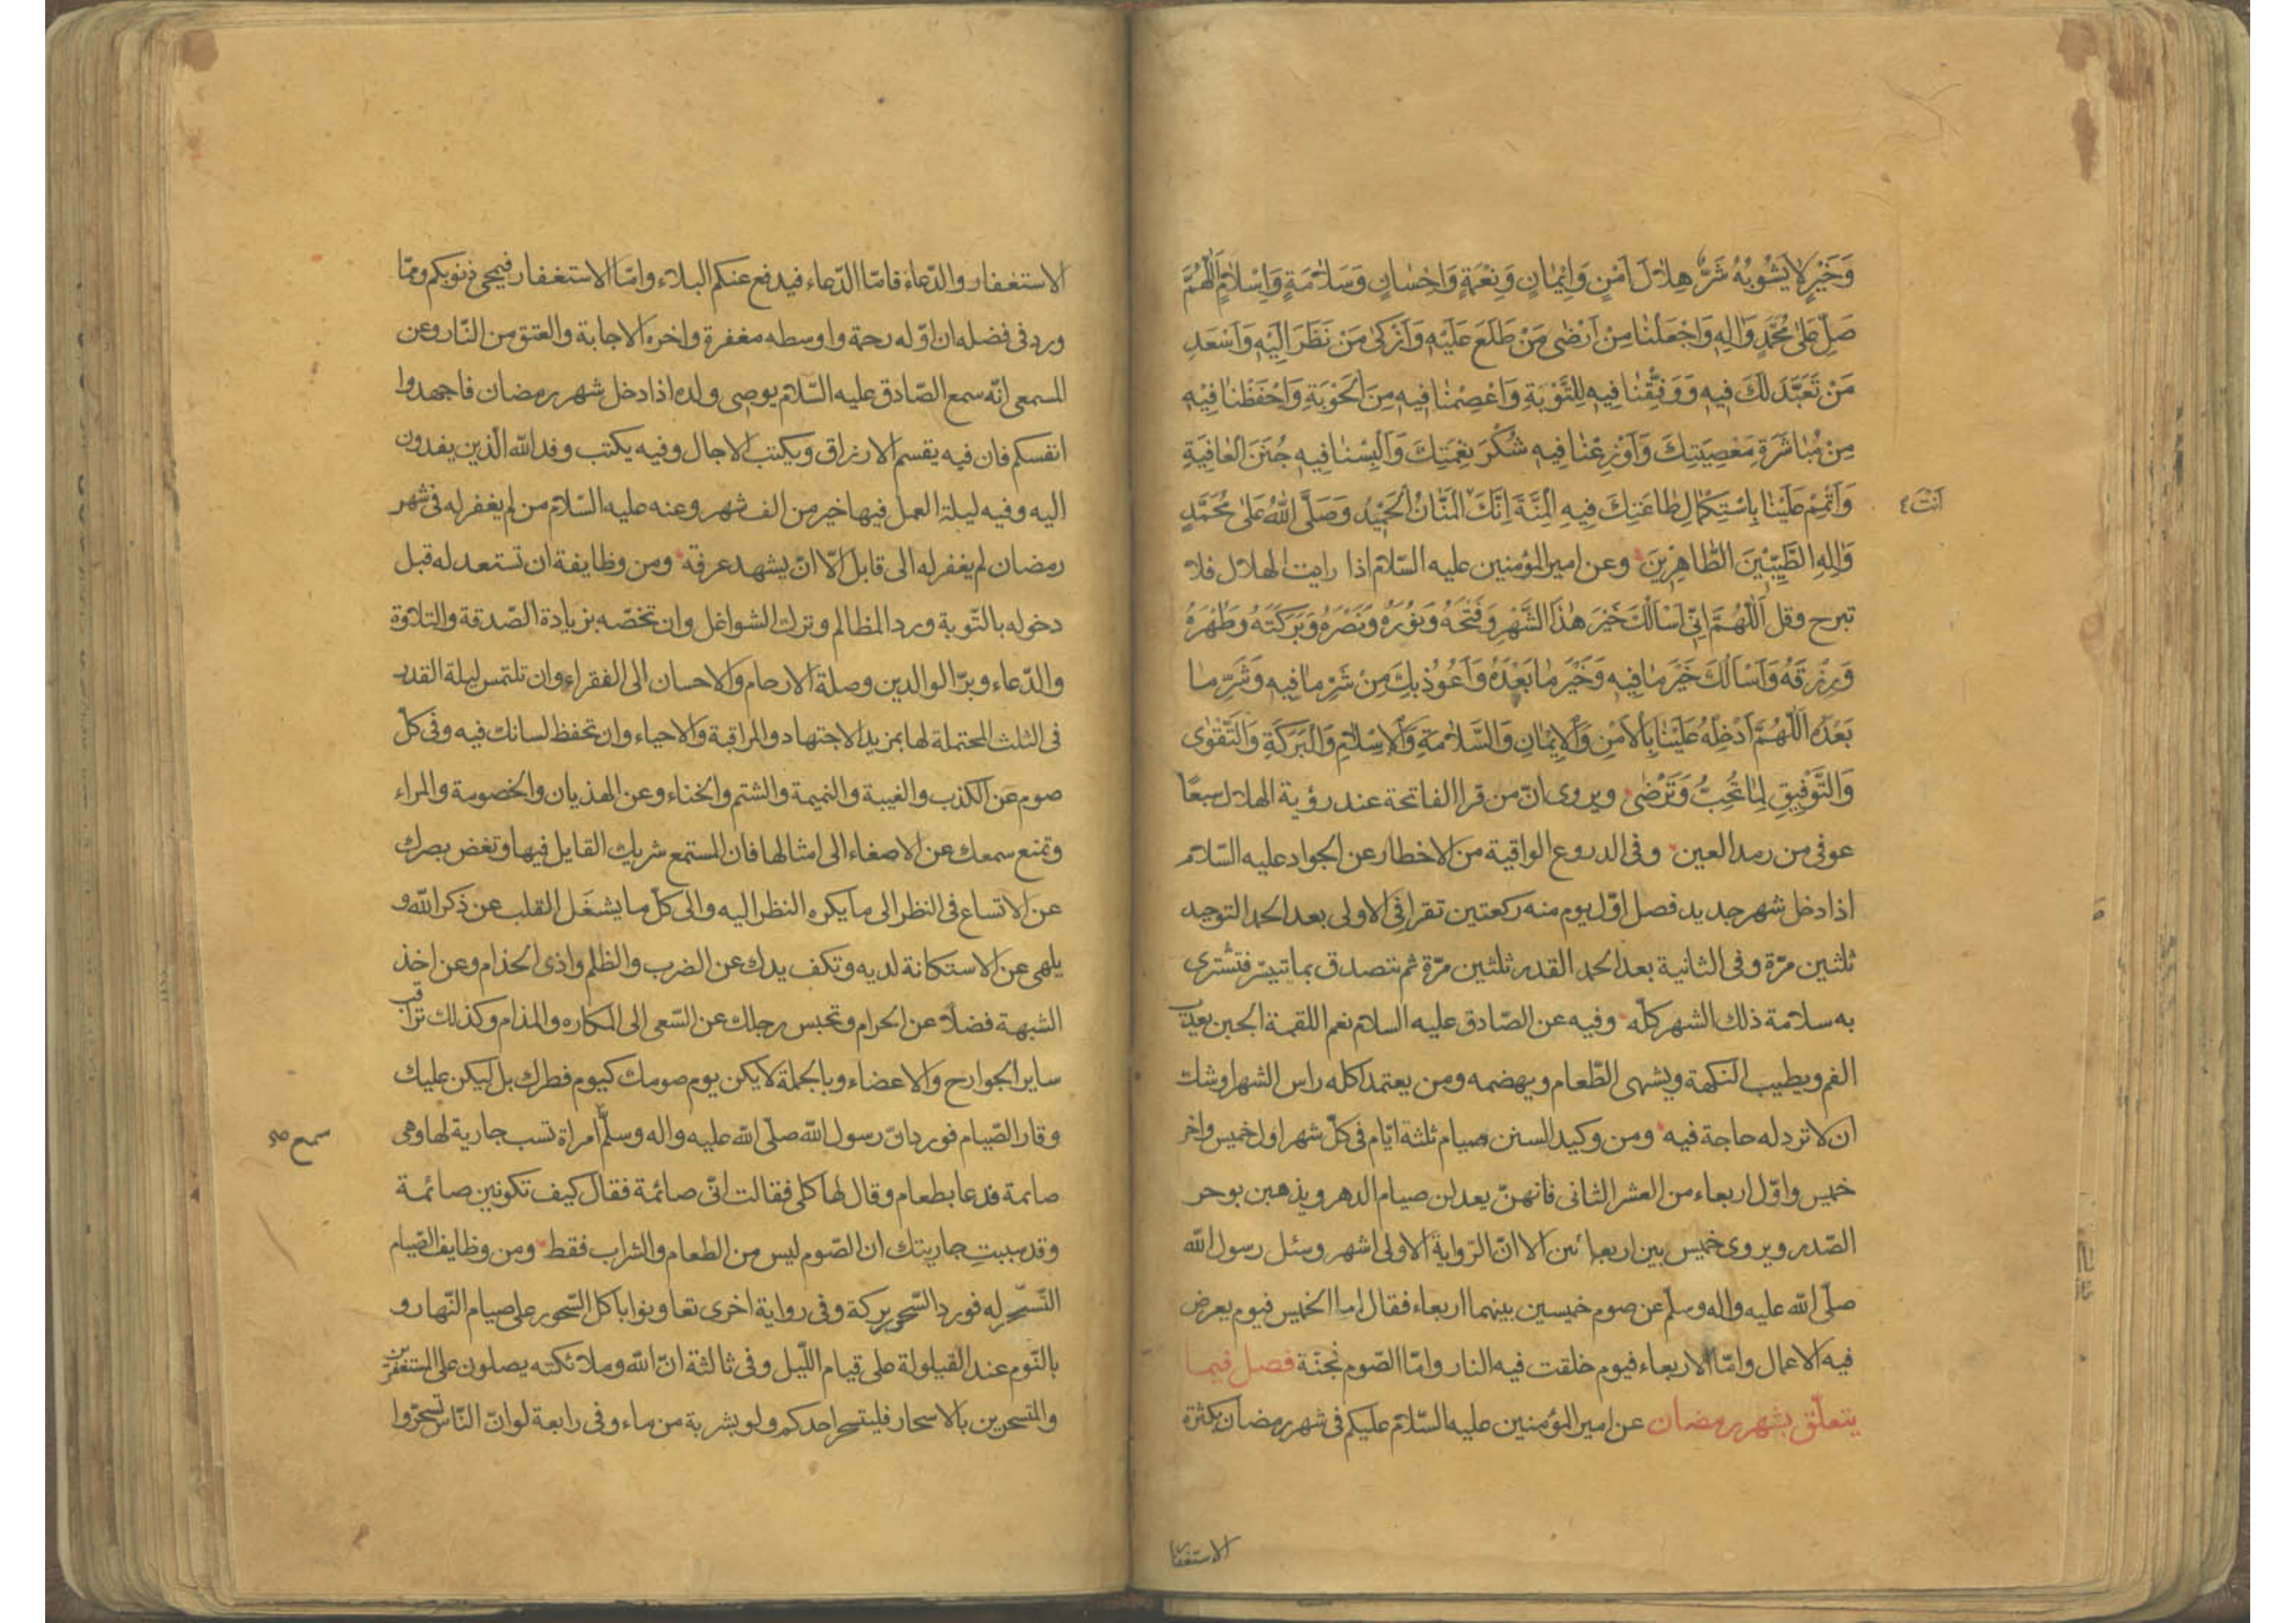 وَخَيْرٍ لَا يَشُوبُهُ شَرٌّ هِلَالَ اَمْنٍ وَاِيمَانٍ وَنِعْمَةٍ وَاِحْسَانٍ وَسَلَامَةٍ وَاِسْلَامٍ اَللّٰهُمَّ
صَلِّ عَلىٰ مُحَمَّدٍ وَاٰلِهِ وَاجْعَلْنَا مِنْ اَرْضىٰ مَنْ طَلَعَ عَلَيْهِ وَاَزْكىٰ مَنْ نَظَرَ اِلَيْهِ وَاَسْعَدِ
مَنْ تَعَبَّدَ لَكَ فِيهِ وَوَفِّقْنَا فِيهِ لِلتَّوْبَةِ وَاعْصِمْنَا فِيهِ مِنَ الْحَوْبَةِ وَاحْفَظْنَا فِيْهِ
مِنْ مُبَاشَرَةِ مَعْصِيَتِكَ وَاَوْزِعْنَا فِيهِ شُكْرَ نِعْمَتِكَ وَاَلْبِسْنَا فِيهِ جُنَنَ الْعَافِيَةِ
وَاَتْمِمْ عَلَيْنَا بِاسْتِكْمَالِ طَاعَتِكَ فِيهِ الْمِنَّةَ اِنَّكَ الْمَنَّانُ الْحَمِيْدُ وَصَلَّى اللّٰهُ عَلىٰ مُحَمَّدٍ
اَنْتَ ٤
وَاٰلِهِ الطَّيِّبِيْنَ الطَّاهِرِيْنَ وعن امير المؤمنين عليه السّلام اذا رايت الهلال فلا
تبرح وقل اَللّٰهُمَّ اِنِّي اَسْاَلُكَ خَيْرَ هٰذَا الشَّهْرِ وَفَتْحَهُ وَنُوْرَهُ وَنَصْرَهُ وَبَرَكَتَهُ وَطَهُرَهُ
وَرِزْقَهُ وَاَسْاَلُكَ خَيْرَ مَا فِيهِ وَخَيْرَ مَا بَعْدَهُ وَاَعُوْذُ بِكَ مِنْ شَرِّ مَا فِيهِ وَشَرِّ مَا
بَعْدَهُ اَللّٰهُمَّ اَدْخِلْهُ عَلَيْنَا بِالْاَمْنِ وَالْاِيمَانِ وَالسَّلَامَةِ وَالْاِسْلَامِ وَالْبَرَكَةِ وَالتَّقْوٰى
وَالتَّوْفِيقِ لِمَا تُحِبُّ وَتَرْضٰى ويروى انّ من قرا الفاتحة عند رؤية الهلال سبعًا
عوفى من رمد العين وفى الدروع الواقية من الاخطار عن الجواد عليه السّلام
اذا دخل شهر جديد فصل اوّل يوم منه ركعتين تقرا فى الاولى بعد الحمد التوحيد
ثلثين مرّة وفى الثانية بعد الحمد القدر ثلثين مرّة ثم تتصدق بما تيسّر فتشترى
به سلامة ذلك الشهر كلّه وفيه عن الصّادق عليه السلام نعم اللقمة الجبن يعذب
الفم ويطيب النكهة ويشهى الطّعام ويهضمه ومن يعتمد اكله راس الشهر اوشك
ان لا ترد له حاجة فيه ومن وكيد السنن صيام ثلثة ايّام فى كلّ شهر اول خميس واخر
خميس واوّل اربعاء من العشر الثانى فانهنّ يعدلن صيام الدهر ويذهبن بوحر
الصّدر ويروى خميس بين اربعائين الا انّ الرّواية الاولى اشهر وسئل رسول الله
صلّى الله عليه واله وسلم عن صوم خميسين بينهما اربعاء فقال اما الخميس فيوم يعرض
فيه الاعمال وامّا الاربعاء فيوم خلقت فيه النار وامّا الصّوم فجنّة فصل فيما
يتعلّق بشهر رمضان عن امير المؤمنين عليه السّلام عليكم فى شهر رمضان بكثرة
الاستغفار
الاستغفار والدّعاء فامّا الدّعاء فيدفع عنكم البلاء وامّا الاستغفار فيمحى ذنوبكم وممّا
ورد فى فضله ان اوّله رحمة واوسطه مغفرة واخره الاجابة والعتق من النّار وعن
المسمعى انّه سمع الصّادق عليه السّلام يوصى ولده اذا دخل شهر رمضان فاجهدوا
انفسكم فان فيه يقسم الارزاق ويكتب الاجال وفيه يكتب وفد الله الّذين يفدون
اليه وفيه ليلة العمل فيها خير من الف شهر وعنه عليه السّلام من لم يغفر له فى شهر
رمضان لم يغفر له الى قابل الّا انّ يشهد عرفة ومن وظايفة ان تستعد له قبل
دخوله بالتّوبة ورد المظالم وترك الشواغل وان تخصّه بزيادة الصّدقة والتلاوة
والدّعاء وبرّ الوالدين وصلة الارحام والاحسان الى الفقراء وان تلتمس ليلة القدر
فى الثلث المحتملة لها بمزيد الاجتهاد والمراقبة والاحياء وان تحفظ لسانك فيه وفى كلّ
صوم عن الكذب والغيبة والنميمة والشتم والخناء وعن الهذيان والخصومة والمراء
وتمنع سمعك عن الاصغاء الى امثالها فان المستمع شريك القايل فيها وتغض بصرك
عن الاتساع فى النظر الى ما يكره النظر اليه والى كلّ ما يشغَل القلب عن ذكر الله و
يلهى عن الاستكانة لديه وتكف يدك عن الضرب والظلم واذى الخدام وعن اخذ
الشبهة فضلا عن الحرام وتحبس رجلك عن السّعى الى المكاره والمذام وكذلك تراقب
ساير الجوارح والاعضاء وبالجملة لا يكن يوم صومك كيوم فطرك بل ليكن عليك
وقار الصّيام فورد انّ رسول الله صلّى الله عليه واله وسلّم امراة تسب جارية لها وهى
سمع صح
صائمة فدعا بطعام وقال لها كلى فقالت انّى صائمة فقال كيف تكونين صائمة
وقد سببتِ جاريتك ان الصّوم ليس من الطعام والشراب فقط ومن وظايف الصّيام
التّسحّر له فورد السّحور بركة وفى رواية اخرى تعاونوا باكل السّحور على صيام النّهار و
بالنّوم عند القيلولة على قيام اللّيل وفى ثالثة انّ الله وملائكته يصلون على المستغفرين
والمتسحرين بالاسحار فليتسحر احدكم ولو بشربة من ماء وفى رابعة لو انّ النّاس تسحّروا